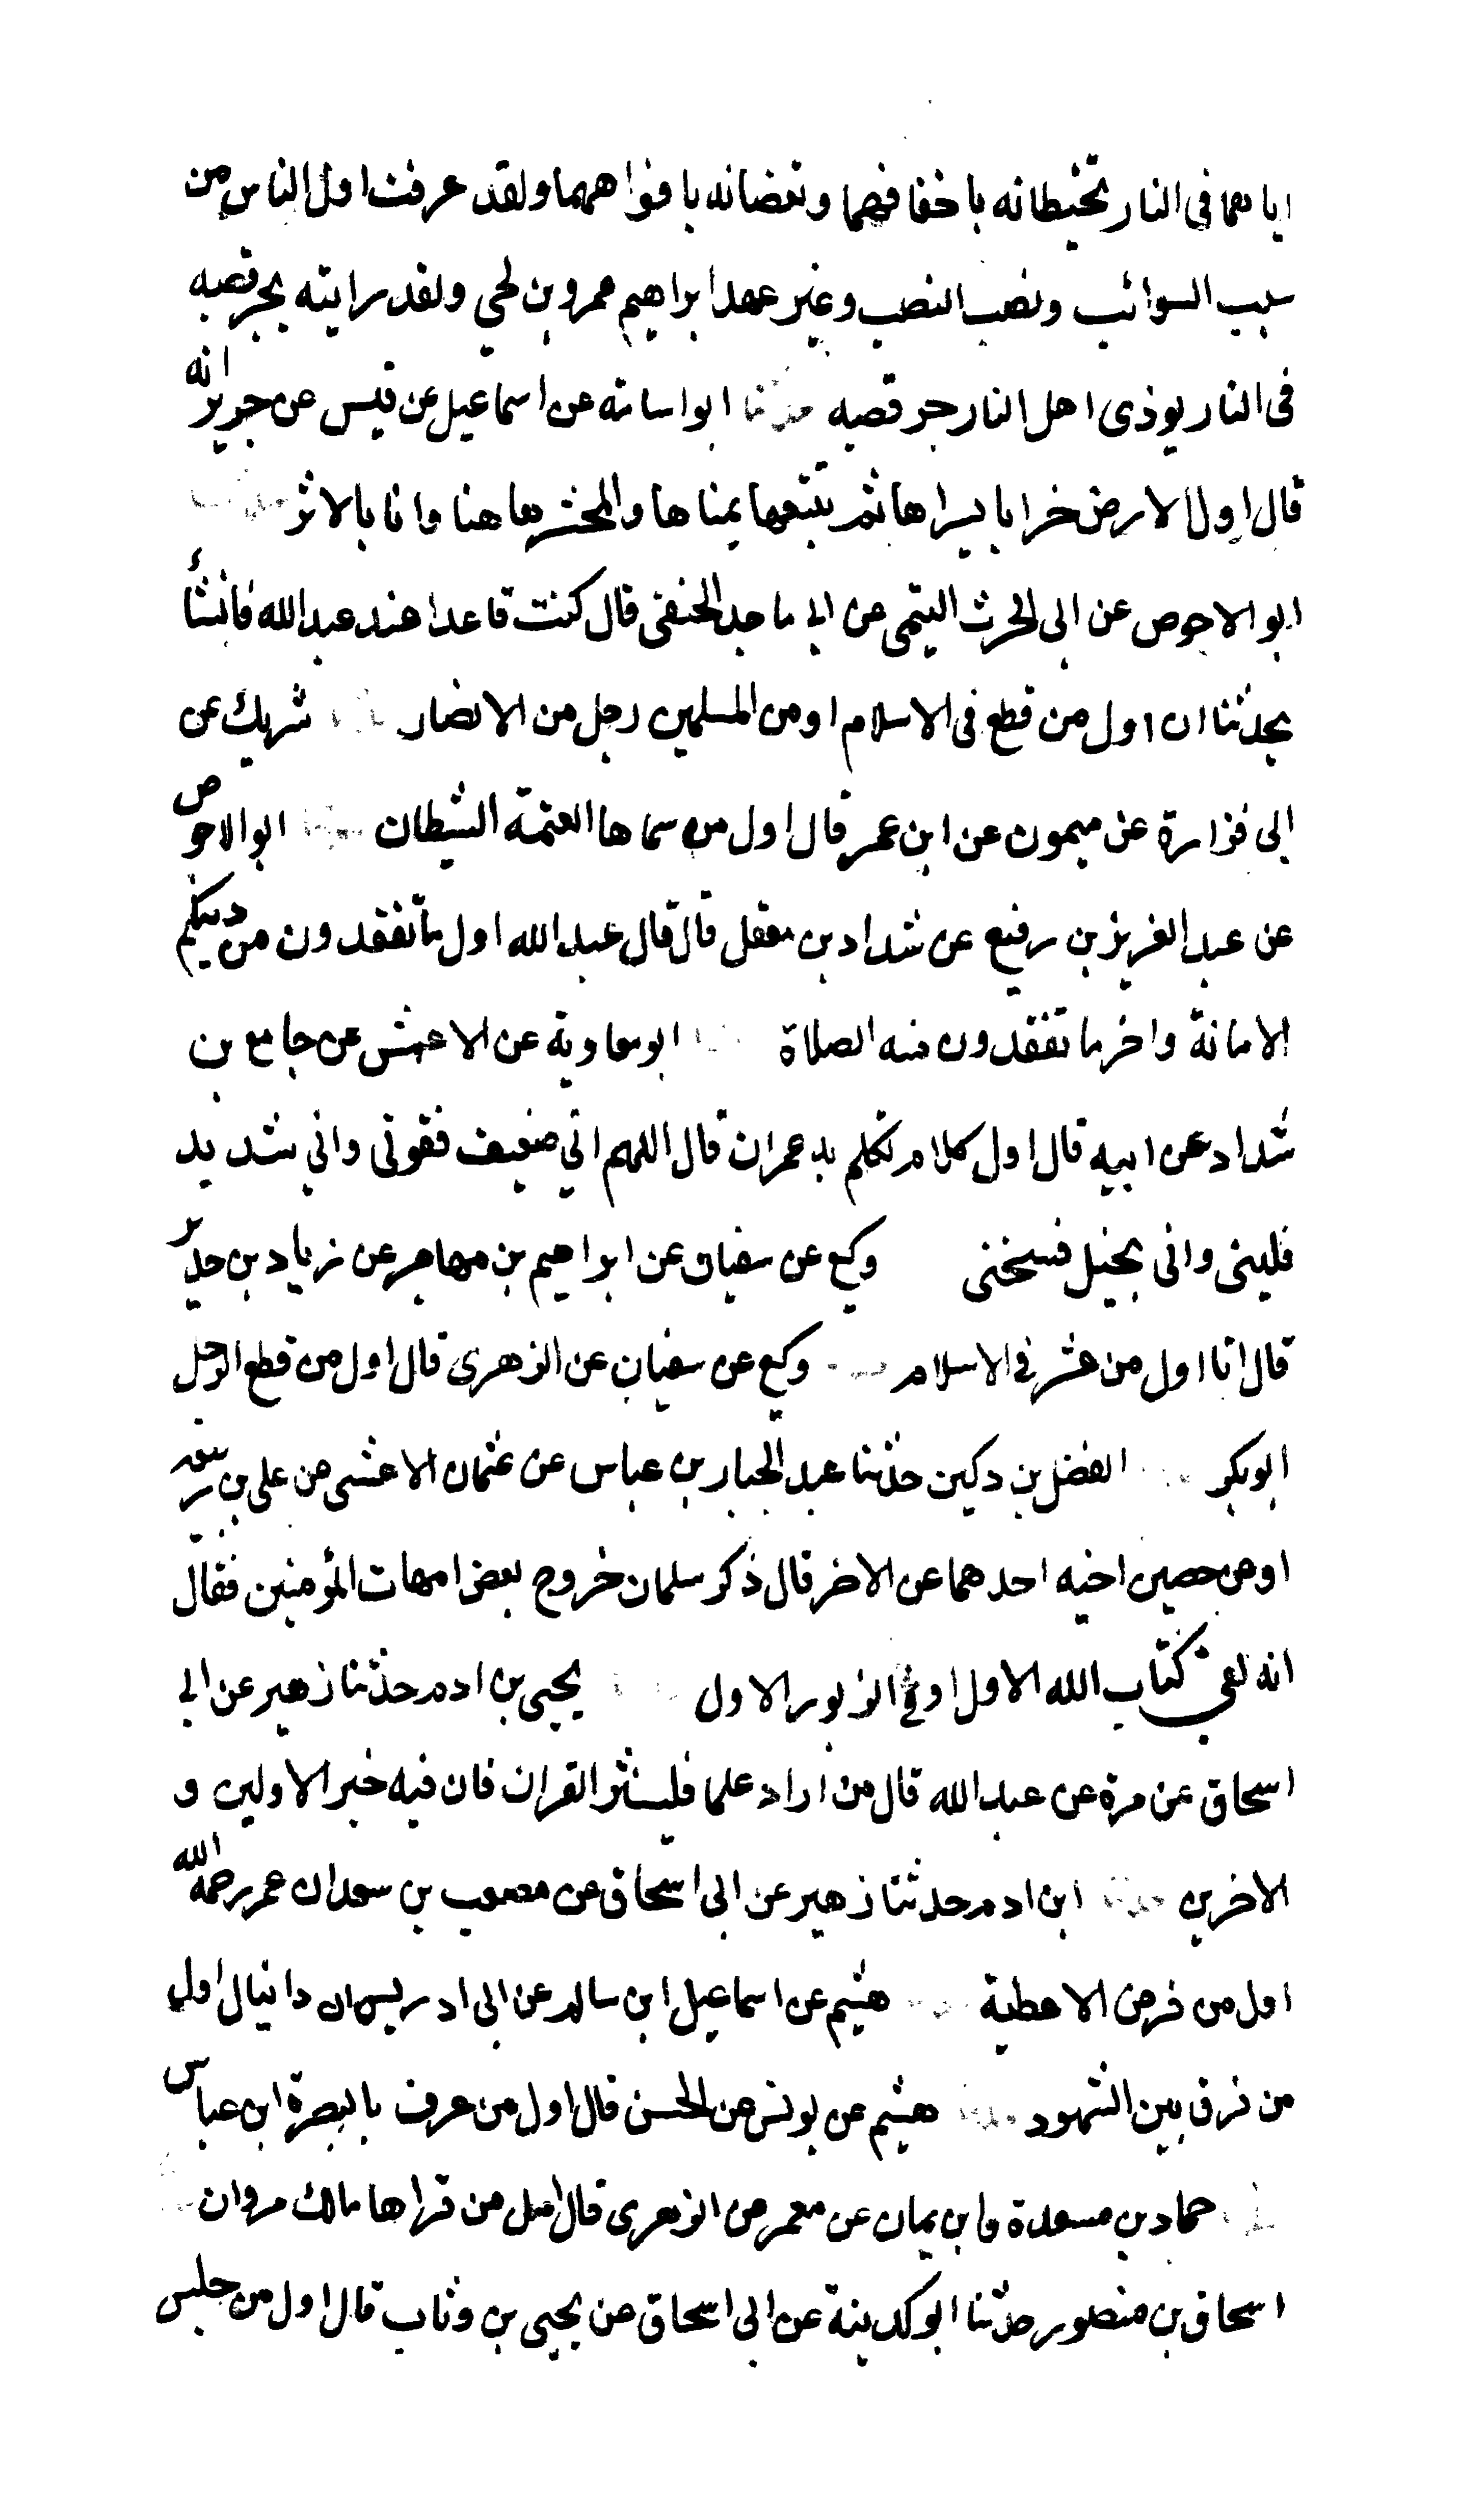 اياهما في النار تخبطانه باخفافهما وتعضانه بافواههما ولقد عرفت اول الناس من
سيب السوائب ونصب النصب وغير عهد ابراهيم عمرو بن لحي ولقد رايته يجر قصبه
في النار يوذى اهل النار جر قصبه حدثنا ابو اسامة عن اسماعيل عن قيس عن جرير انه
قال اول الارض خرابا يسراها ثم يتبعها يمناها والمحشر هاهنا وانا بالاثر
ابو الاحوص عن ابي الحرث التيمي عن ابي ماجد الحنفي قال كنت قاعدا عند عبد الله فانشأ
يحدثنا ان اول من قطع في الاسلام او من المسلمين رجل من الانصار شريك عن
ابي فزارة عن ميمون عن ابن عمر قال اول من سماها العتمة الشيطان ابو الاحوص
عن عبد العزيز بن رفيع عن شداد بن معقل قال قال عبد الله اول ما تفقدون من دينكم
الامانة واخر ما تفقدون منه الصلاة ابو معاوية عن الاعمش عن جامع بن
شداد عن ابيه قال اول كلام تكلم به عمر ان قال اللهم اني ضعيف فقوني واني شديد
فليني واني بخيل فسخني وكيع عن سفيان عن ابراهيم بن مهاجر عن زياد بن حدير
قال انا اول من عشر في الاسلام وكيع عن سفيان عن الزهرى قال اول من قطع الرجل
ابو بكر الفضل بن دكين حدثنا عبد الجبار بن عباس عن عثمان الاعشى عن على بن
او عن حصين اخيه احدهما عن الاخر قال ذكر سلمان خروج بعض امهات المؤمنين فقال
انه لفي كتاب الله الاول او في الزبور الاول يحيى بن ادم حدثنا زهير عن ابي
اسحاق عن مرة عن عبد الله قال من اراد علما فليثر القران فان فيه خبر الاولين و
الاخرين حدثنا ابن ادم حدثنا زهير عن ابي اسحاق عن مصعب بن سعد ان عمر رحمه الله
اول من فرض الاعطية هشيم عن اسماعيل ابن سالم عن ابي ادريس ان دانيال اول
من فرق بين الشهود حدثنا هشيم عن يونس عن الحسن قال اول من عرف بالبصرة ابن عباس
حماد بن مسعدة وابن يمان عن معمر عن الزهرى قال اول من قراها مالك مروان
اسحاق بن منصور حدثنا ابو كدينة عن ابي اسحاق عن يحيى بن وثاب قال اول من جلس